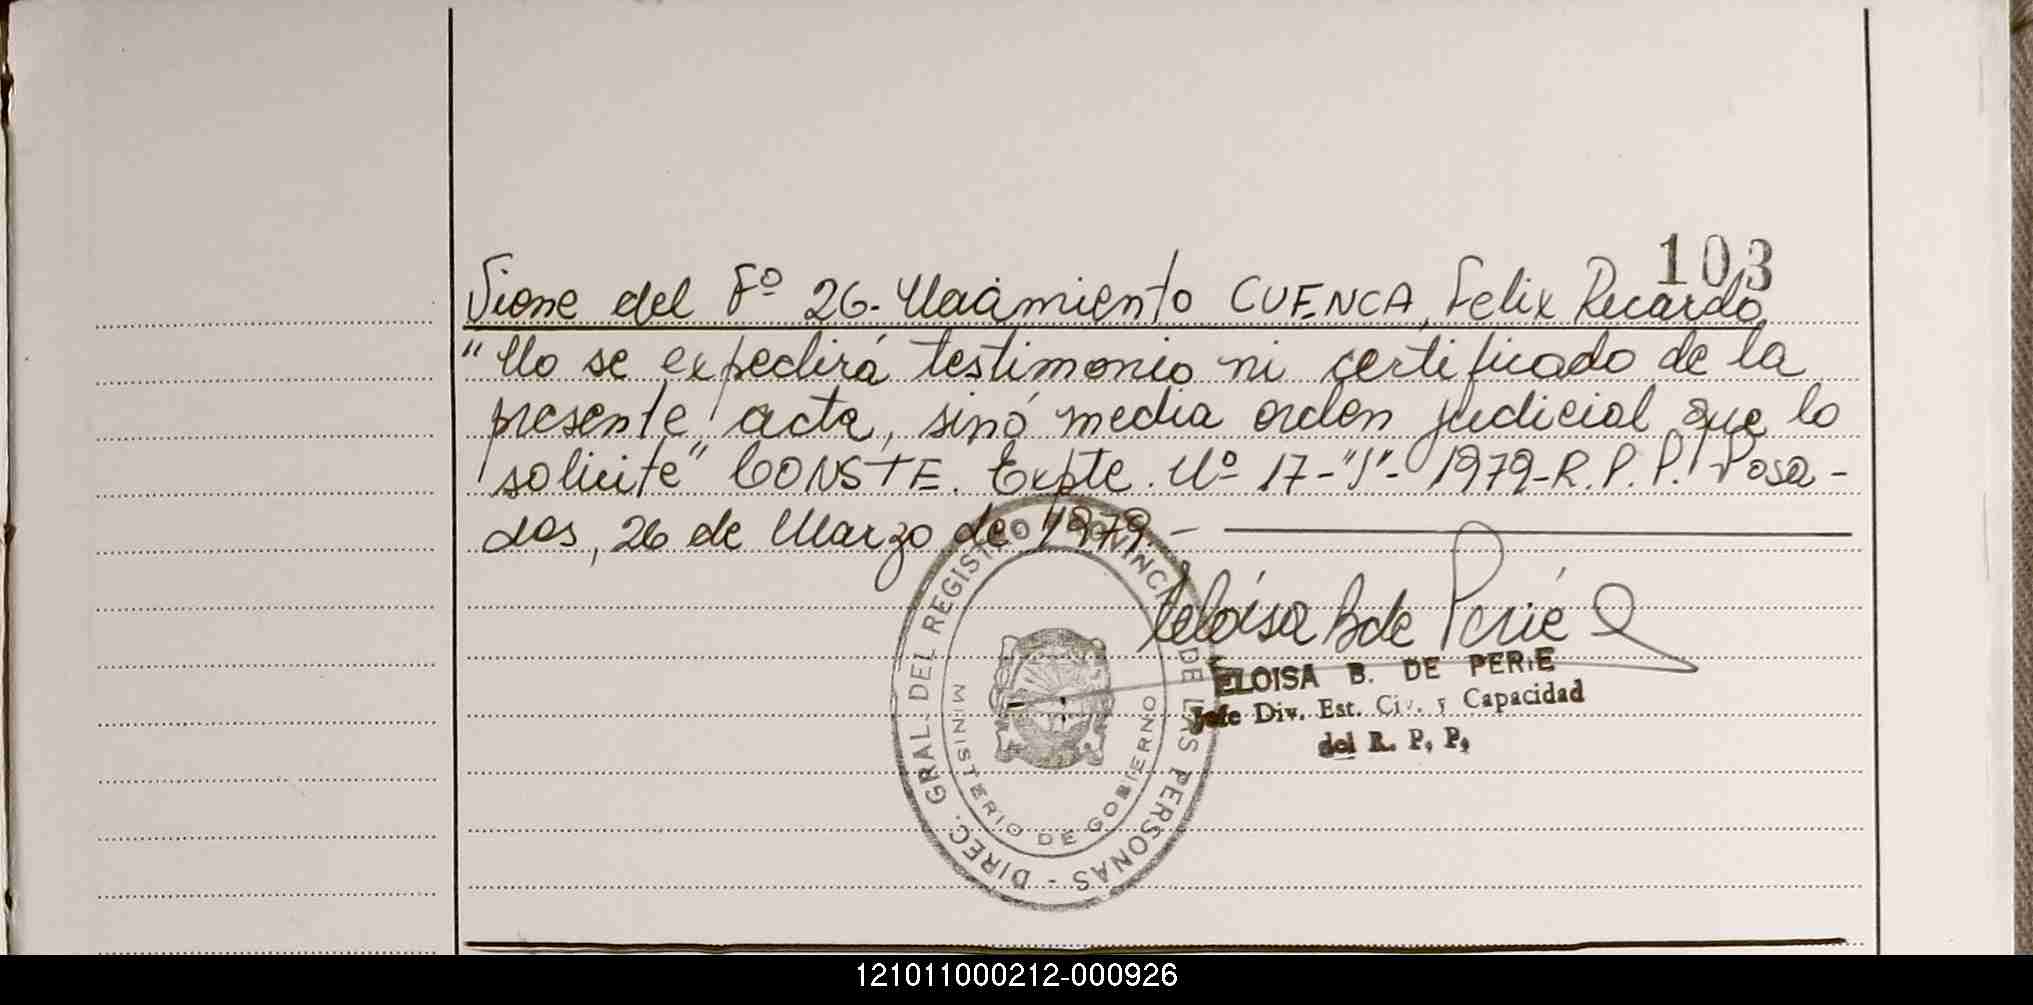 103
Viene del Fº 26.- Nacimiento CUENCA, Felix Ricardo
"No se expedirá testimonio ni certificado de la
presente acta, sinó media orden judicial que lo
solicite" CONSTE. Expte. Nº 17-"J"- 1979-R.P.P. Posa-
das, 26 de Marzo de 1979.-
Eloisa B de Perié
ELOISA B. DE PERIE
Jefe Div. Est. Civ. y Capacidad
del R. P. P.
DIREC. GRAL. DEL REGISTRO PROVINCIAL DE LAS PERSONAS -
MINISTERIO DE GOBIERNO
121011000212-000926